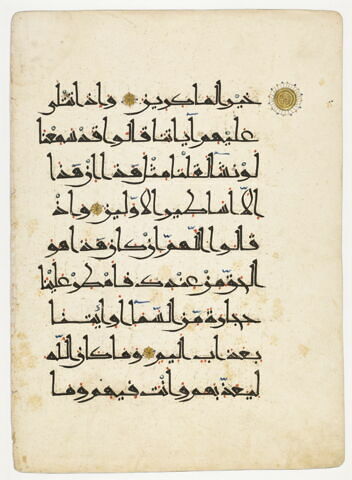 خير الماكرين وإذا تتلى
عليهم آياتنا قالوا قد سمعنا
لو نشاء لقلنا مثل هذا إن هذا
إلّا أساطير الأولين وإذ
قالوا اللّهمّ إن كان هذا هو
الحقّ من عندك فأمطر علينا
حجارة مّن السّماء أو ائتنا
بعذاب أليم وما كان اللّه
ليعذّبهم وأنت فيهم وما